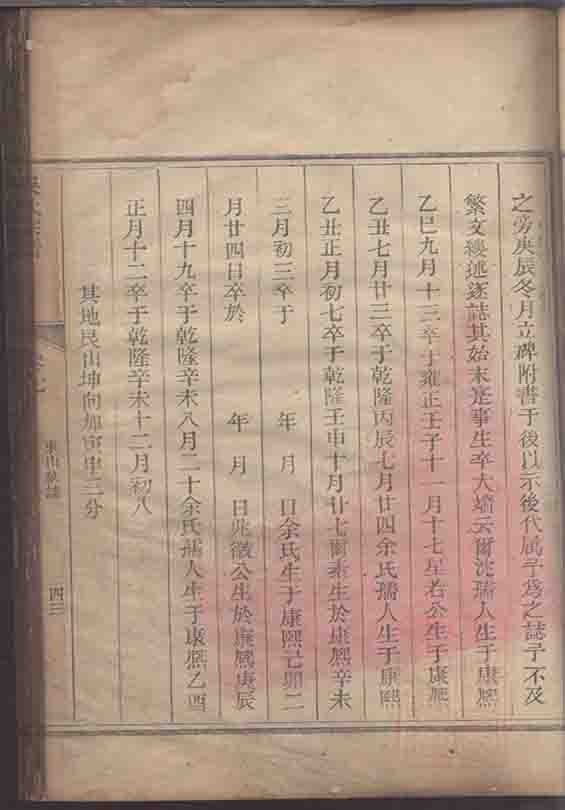 之旁庚辰冬月立碑附書于後以示後代属予為之誌予不及
繁文縷述逐誌其始末是事生卒大端云爾沈孺人生于康熙
乙巳九月十三卒于雍正壬子十一月十七星若公生于康熙
乙丑七月廿三卒于乾隆丙辰七月廿四余氏孺人生于康熙
乙丑正月初七卒于乾隆壬申十月廿七爾素生於康熙辛未
三月初三卒于 年 月 日余氏生于康熙己卯二
月廿四日卒於 年 月 日兆徵公生於康熙庚辰
四月十九卒于乾隆辛未八月二十余氏孺人生于康熙乙酉
正月十二卒于乾隆辛未十二月初八
其地艮山坤向加寅申三分
東山
四三